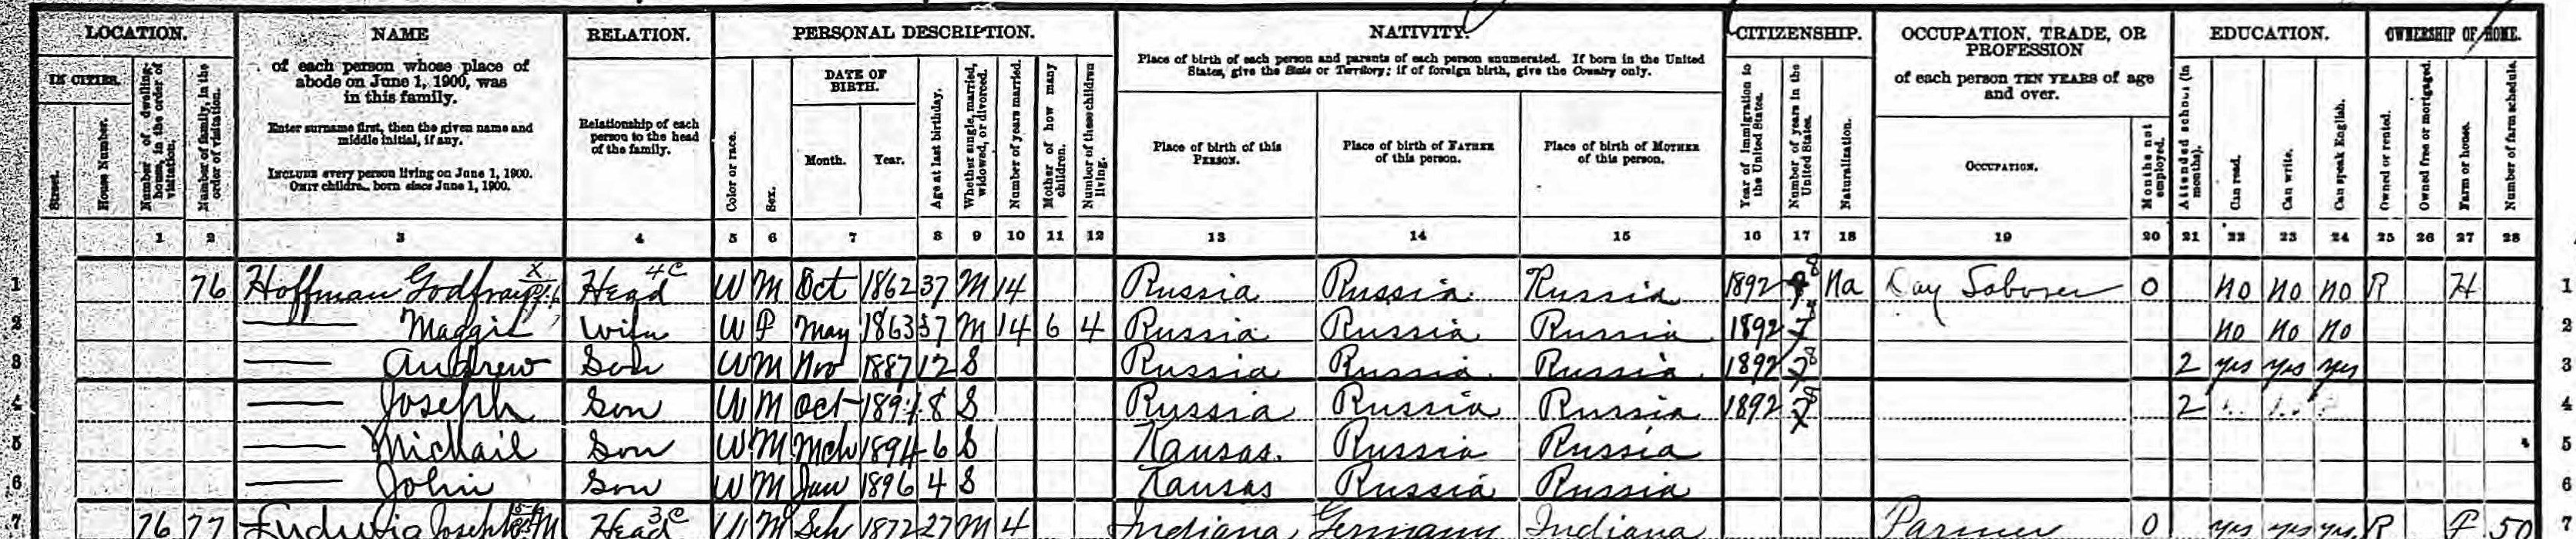 LOCATION. NAME RELATION. PERSONAL DESCRIPTION. NATIVITY. CITIZENSHIP. OCCUPATION, TRADE, OR PROFESSION EDUCATION. OWNERSHIP OF HOME.
IN CITIES.
Street.
House Number.
Number of dwelling-house, in the order of visitation.
Number of family, in the order of visitation.
of each person whose place of abode on June 1, 1900, was in this family.
Enter surname first, then the given name and middle initial, if any.
INCLUDE every person living on June 1, 1900.
OMIT children born since June 1, 1900.
Relationship of each person to the head of the family.
Color or race.
Sex.
DATE OF BIRTH.
Month. Year.
Age at last birthday.
Whether single, married, widowed, or divorced.
Number of years married.
Mother of how many children.
Number of these children living.
Place of birth of each person and parents of each person enumerated. If born in the United States, give the State or Territory; if of foreign birth, give the Country only.
Place of birth of this PERSON.
Place of birth of FATHER of this person.
Place of birth of MOTHER of this person.
Year of immigration to the United States.
Number of years in the United States.
Naturalization.
of each person TEN YEARS of age and over.
OCCUPATION.
Months not employed.
Attended school (in months).
Can read.
Can write.
Can speak English.
Owned or rented.
Owned free or mortgaged.
Farm or house.
Number of farm schedule.
1 2 3 4 5 6 7 8 9 10 11 12 13 14 15 16 17 18 19 20 21 22 23 24 25 26 27 28
1 76 Hoffman Head 4 C W M Oct 1862 37 M 14 Russia Russia Russia 1892 8 Na Day Laborer 0 no no no R H 1
2 Maggie Wife W F May 1863 37 M 14 6 4 Russia Russia Russia 1892 7 no no no 2
3 Andrew Son W M Nov 1887 12 S Russia Russia Russia 1892 8 2 yes yes yes 3
4 Joseph Son W M Oct 1891 8 S Russia Russia Russia 1892 8 2 4
5 Michail Son W M Mch 1894 6 S Kansas. Russia Russia 5
6 John Son W M Jan 1896 4 S Kansas Russia Russia 6
7 76 77 Ludwig Joseph M Head 3 C W M Sep 1872 27 M 4 Indiana Germany Indiana Farmer 0 yes yes yes R F 50 7